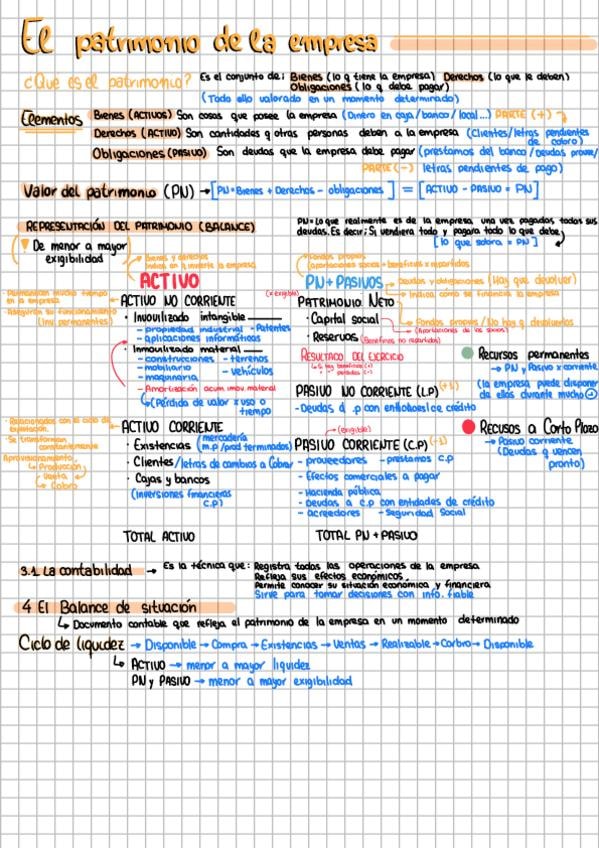 El patrimonio de la empresa
¿Que es el patrimonio? Es el conjunto de: Bienes (lo q tiene la empresa) Derechos (lo que le deben)
Obligaciones (lo q debe pagar)
(Todo ello valorado en un momento determinado)
Elementos Bienes (ACTIVOS) Son cosas que posee la empresa (Dinero en caja/banco/local...) PARTE (+)
Derechos (ACTIVO) Son cantidades q otras personas deben a la empresa (Clientes/letras pendientes de cobro)
Obligaciones (PASIVO) Son deudas que la empresa debe pagar (prestamos del banco/Deudas provee/
PARTE (-) letras pendientes de pago)
Valor del patrimonio (PN) → [PN=Bienes + Derechos - obligaciones] = [ACTIVO - PASIVO = PN]
REPRESENTACIÓN DEL PATRIMONIO (BALANCE)
PN=Lo que realmente es de la empresa una vez pagados todos sus
deudas. Es decir; Si vendiera todo y pagara todo lo que debe
[lo que sobra = PN]
De menor a mayor
exigibilidad
Bienes y derechos
Indica en q invierte la empresa
ACTIVO
Fondos propios
(aportaciones socios + beneficios x repartidos
PN + PASIVOS
Deudas y obligaciones (Hay que devolver)
Indica como se financia la empresa
- Permanecen mucho tiempo
en la empresa
- Aseguran su funcionamiento
(Inv. permanentes)
ACTIVO NO CORRIENTE
· Inmovilizado intangible
- propiedad industrial - Patentes
- aplicaciones informáticas
· Inmovilizado material
- construcciones - terrenos
- mobiliario - vehículos
- maquinaria
- Amortización acum inmov. material
(Pérdida de valor x uso o
tiempo
(x exigible)
PATRIMONIO NETO
· Capital social
Fondos propios/No hay q devolverlos
(Aportaciones de los socios)
· Reservas (Beneficios no repartidos)
RESULTADO DEL EJERCICIO
Si hay beneficios (+)
perdidas (-)
PASIVO NO CORRIENTE (L.P) (+1)
-Deudas a l.p con entidades de crédito
Recursos permanentes
→ PN y Pasivo x corriente
(la empresa puede disponer
de ellos durante mucho
- Relacionados con el ciclo de
explotación.
- Se transforman
constantemente
Aprovisionamiento
Producción
Venta
Cobro
ACTIVO CORRIENTE
· Existencias (mercadería
m.p/prod terminados)
· Clientes/letras de cambios a Cobrar
· Cajas y bancos
(inversiones financieras
c.p)
(exigible)
PASIVO CORRIENTE (C.P) (-1)
- proveedores - prestamos c.p
- Efectos comerciales a pagar
- Hacienda pública
- Deudas a c.p con entidades de crédito
- acreedores - Seguridad Social
Recusos a Corto Plazo
→ Pasivo corriente
(Deudas q vencen
pronto)
TOTAL ACTIVO TOTAL PN + PASIVO
3.1. La contabilidad → Es la técnica que: Registra todas las operaciones de la empresa
Refleja sus efectos económicos.
Permite conocer su situación económica y financiera
Sirve para tomar decisiones con info. fiable
4 El Balance de situación
↳ Documento contable que refleja el patrimonio de la empresa en un momento determinado
Ciclo de liquidez → Disponible → Compra → Existencias → Ventas → Realizable → Corbro → Disponible
↳ ACTIVO → menor a mayor liquidez
PN y PASIVO → menor a mayor exigibilidad